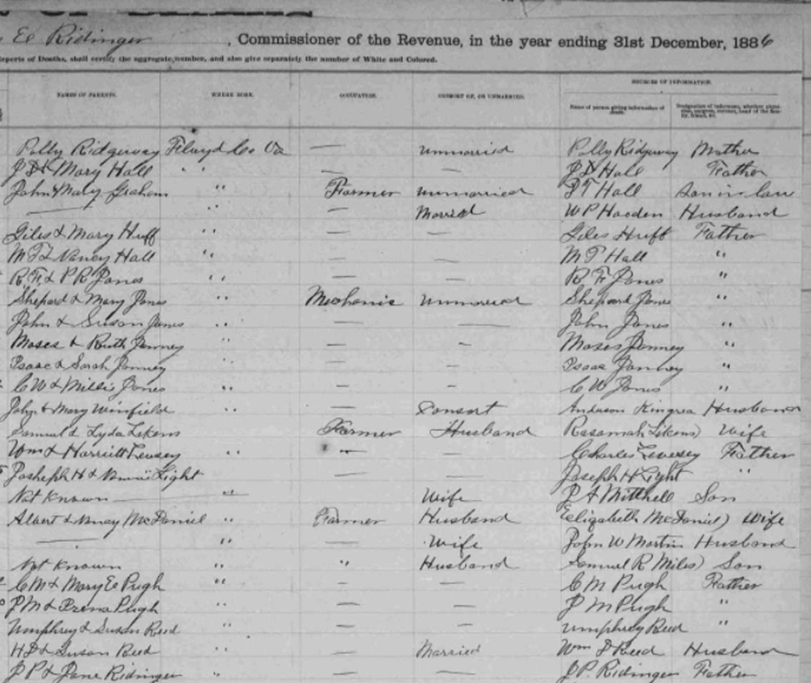 Ec Ridinger, Commissioner of the Revenue, in the year ending 31st December, 1886
eports of Deaths, shall certify the aggregate number, and also give separately the number of White and Colored.
SOURCES OF INFORMATION.
NAMES OF PARENTS. WHERE BORN. OCCUPATION. CONSORT OF, OR UNMARRIED. Name of person giving information of death.
Polly Ridgeway Floyd Co Va — unmarried Polly Ridgeway Mother
J D & Mary Hall " — — J D Hall Father
John & Mary Graham " Farmer unmarried D T Hall Son in law
— " — Married W P Husband
Giles & Mary Huff " — — Giles Huff Father
M T & Nancy Hall " — — M T Hall "
R F & P R Jones " — — R F Jones "
Shepard & Mary Jones " Mechanic unmarried Shepard Jones "
John & Susan Jones " — — John Jones "
Moses & Ruth Janney " — — Moses Janney "
Isaac & Sarah Janney — — Isaac Janney "
C W & Millie Jones " — — C W Jones "
John & Mary Winfield " — Consort Anderson Kingrea Husband
Samuel & Lyda Likens Farmer Husband Rosamah Likens Wife
Wm & Harriett Levesey " " — Charles Levesey Father
Joseph H & Light — — Joseph H Light "
Not Known — " — Wife P A Mitchell Son
Albert & Nancy McDaniel " Farmer Husband Eelizabeth McDaniel Wife
— " — Wife John W Martin Husband
Not Known " " Husband Samuel R Miles Son
C M & Mary Ee Pugh " — — C M Pugh Father
J M & Pugh " — — J M Pugh "
Umphrey & Susan Reed " — — Umphrey Reed "
H D & Susan Reed " — Married Wm D Reed Husband
J P & Jane Ridinger " — — J P Ridinger Father